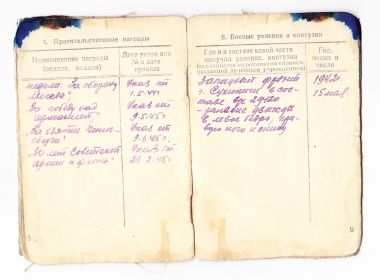 4. Правительственные награды
Наименование награды
(ордена, медали)
Дата указа или
№ и дата
приказа
медаль „За оборону
Москвы"
Указ от
1.5.44 г.
„За победу над
германией"
Указ от
9.5.45 г.
„За взятие Кениг-
сберга"
Указ от
9.6.45 г.
„30 лет Советской
армии и флота"
Указ от
22.2.48 г.
8
5. Боевые ранения и контузии
Где и в составе какой части
получил ранение, контузии
Год,
месяц и
число
Западный фронт
г. Сухиничи в сос-
таве
ранение дважды
в левое бедро, пра-
вую ногу и спину
1942 г
15 мая
9